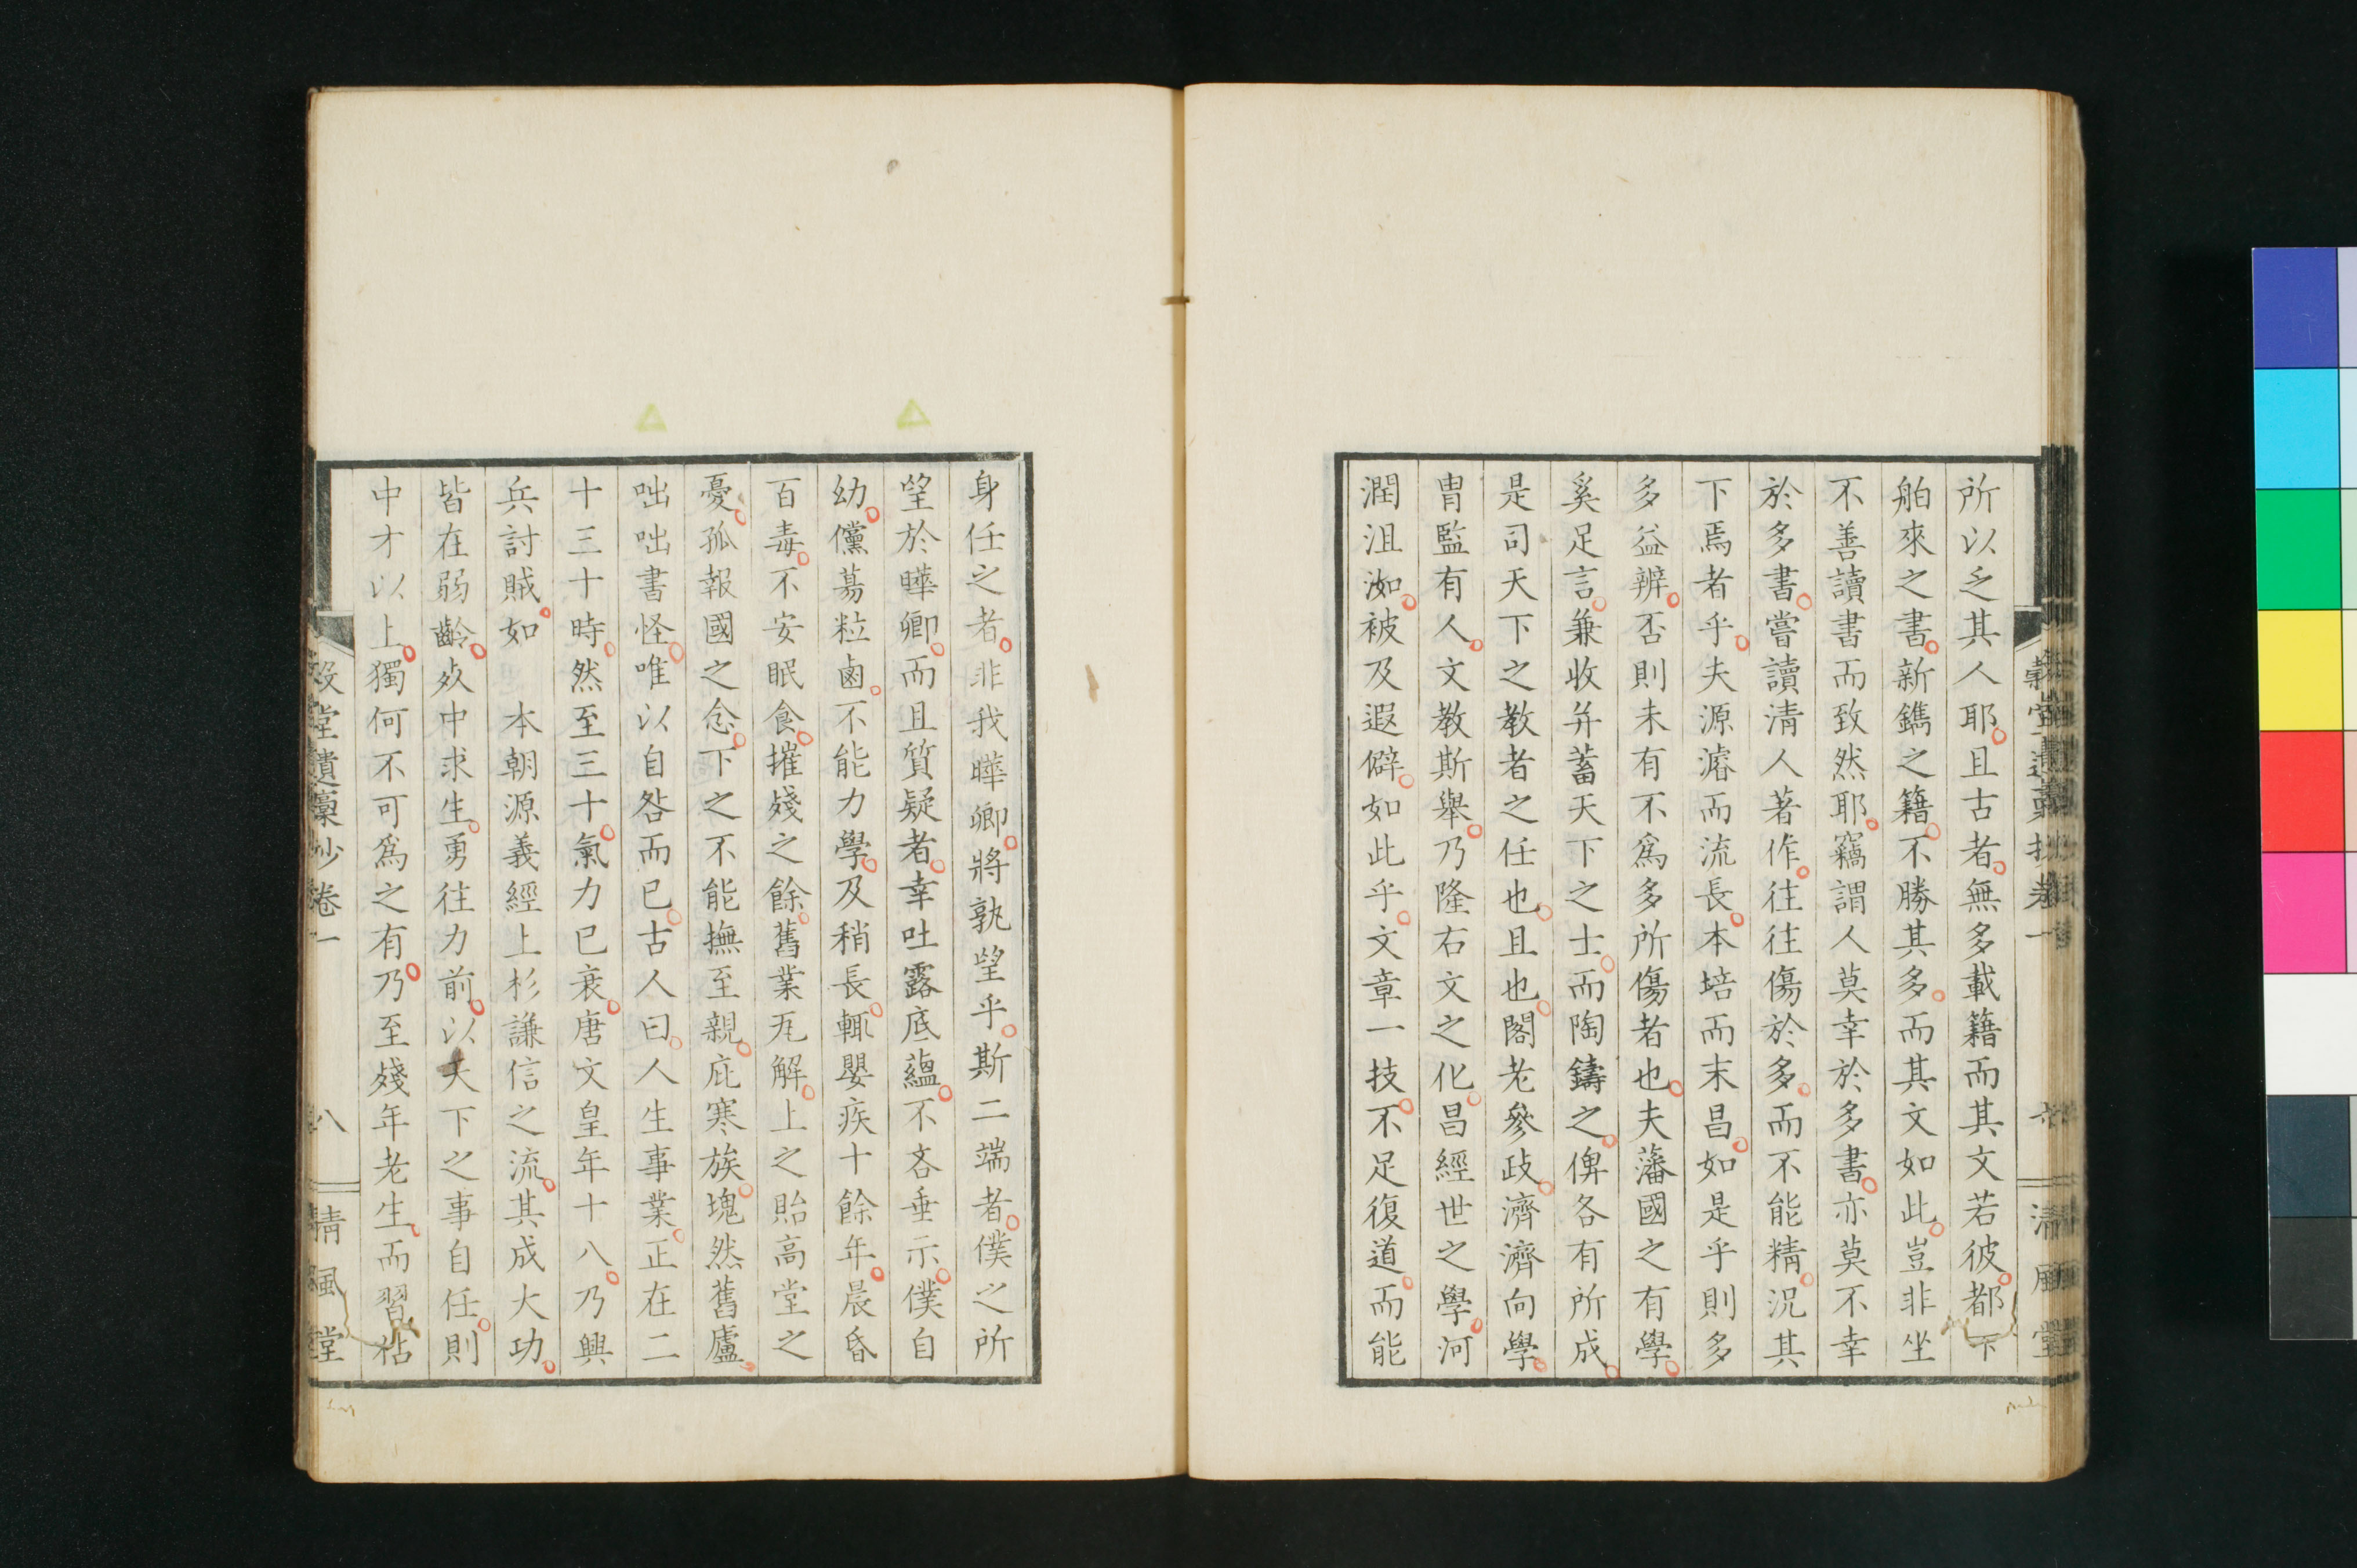 所以乏其人耶且古者無多載籍而其文若彼都下
舶來之書新鐫之籍不勝其多而其文如此豈非坐
不善讀書而致然耶竊謂人莫幸於多書亦莫不幸
於多書嘗讀清人著作往往傷於多而不能精況其
下焉者乎夫源濬而流長本培而末昌如是乎則多
多益辨否則未有不爲多所傷者也夫藩國之有學
奚足言兼收并蓄天下之士而陶鑄之俾各有所成
是司天下之教者之任也且也閣老參政濟濟向學
冑監有人文教斯舉乃隆右文之化昌經世之學河
潤沮洳被及遐僻如此乎文章一技不足復道而能
身任之者非我曄卿將孰望乎斯二端者僕之所
望於曄卿而且質疑者幸吐露底蘊不吝垂示僕自
幼儻蕩粒鹵不能力學及稍長輒嬰疾十餘年晨昏
百毒不安眠食摧殘之餘舊業瓦解上之貽高堂之
憂孤報國之念下之不能撫至親庇寒族塊然舊廬
咄咄書怪唯以自咎而已古人曰人生事業正在二
十三十時然至三十氣力已衰唐文皇年十八乃興
兵討賊如 本朝源義經上杉謙信之流其成大功
皆在弱齡夾中求生勇往力前以天下之事自任則
中才以上獨何不可爲之有乃至殘年老生而習帖
堂遺稾抄卷一 八 清風堂